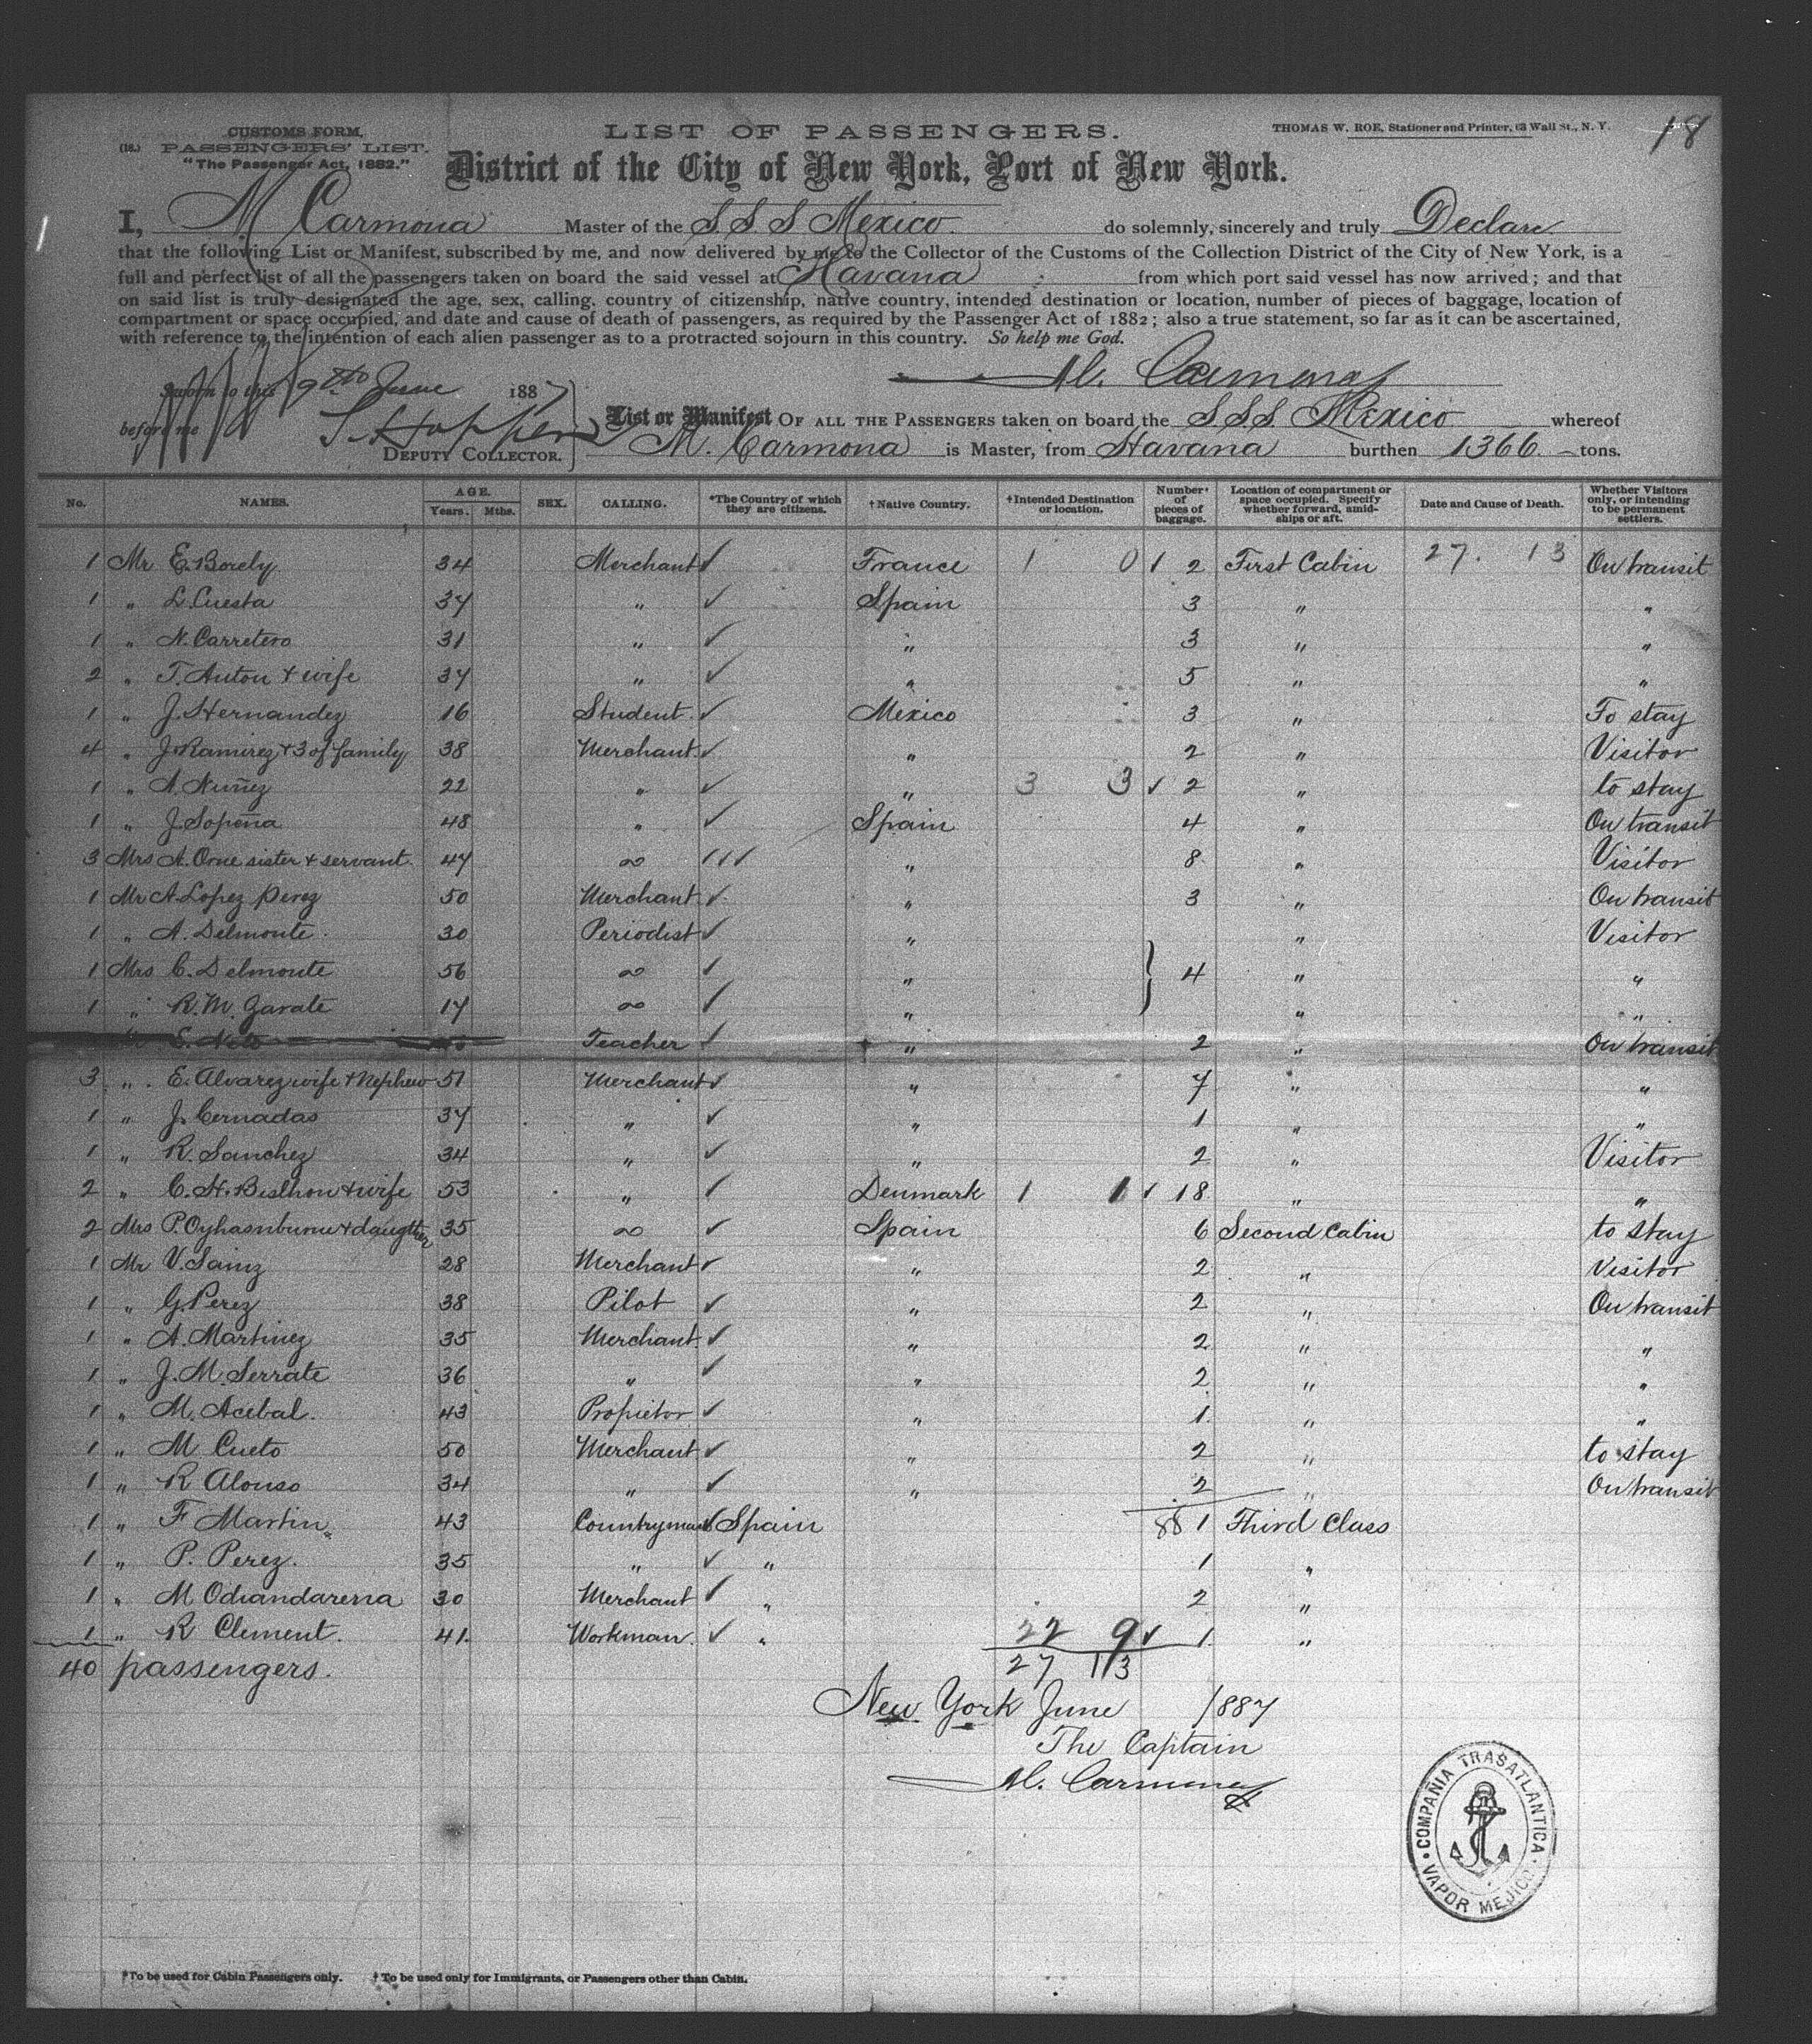 18
CUSTOMS FORM.
(18.) PASSENGERS' LIST.
"The Passenger Act, 1882."
LIST OF PASSENGERS.
THOMAS W. ROE, Stationer and Printer, 63 Wall St., N. Y.
District of the City of New York, Port of New York.
I, M Carmona Master of the S. S. S Mexico do solemnly, sincerely and truly Declare
that the following List or Manifest, subscribed by me, and now delivered by me to the Collector of the Customs of the Collection District of the City of New York, is a
full and perfect list of all the passengers taken on board the said vessel at Havana from which port said vessel has now arrived; and that
on said list is truly designated the age, sex, calling, country of citizenship, native country, intended destination or location, number of pieces of baggage, location of
compartment or space occupied, and date and cause of death of passengers, as required by the Passenger Act of 1882; also a true statement, so far as it can be ascertained,
with reference to the intention of each alien passenger as to a protracted sojourn in this country. So help me God.
M. Carmona
Sworn to this 9th June 1887
before me
DEPUTY COLLECTOR.
List or Manifest OF ALL THE PASSENGERS taken on board the S S S. Mexico whereof
M. Carmona is Master, from Havana burthen 1366 tons.
No. NAMES. AGE. Years. Mths. SEX. CALLING. *The Country of which they are citizens. †Native Country. †Intended Destination or location. Number of pieces of baggage. Location of compartment or space occupied. Specify whether forward, amidships or aft. Date and Cause of Death. Whether Visitors only, or intending to be permanent settlers.
1 Mr E. Borely 34 Merchant ✓ France 1 0 1 2 First Cabin 27. 13 On transit
1 " L. Cuesta 37 " ✓ Spain 3 " "
1 " N. Carretero 31 " ✓ " 3 " "
2 " T. Anton + wife 37 " ✓ " 5 " "
1 " J. Hernandez 16 Student. ✓ Mexico 3 " To stay
4 " J. Ramirez + 3 of family 38 Merchant ✓ " 2 " Visitor
1 " A. Nuñez 22 " ✓ " 3 3 ✓ 2 " to stay
1 " J. Sopeña 48 " ✓ Spain 4 " On transit
3 Mrs A. Orue sister + servant. 47 " 8 " Visitor
1 Mr A. Lopez Perez 50 Merchant ✓ " 3 " On transit
1 " A. Delmonte 30 Periodist ✓ " " Visitor
1 Mrs C. Delmonte 56 ✓ " 4 " "
1 " R. M. Zarate 17 ✓ " " "
Teacher ✓ " 2 " On transit
3 " E. Alvarez wife + Nephew 51 Merchant ✓ " 7 " "
1 " J. Cernadas 37 " ✓ " 1 " "
1 " R. Sanchez 34 " ✓ " 2 " Visitor
2 " C. H. + wife 53 " ✓ Denmark 1 1 ✓ 18 " "
2 Mrs P. + daughter 35 ✓ Spain 6 Second Cabin to stay
1 Mr V. Sainz 28 Merchant ✓ " 2 " Visitor
1 " G. Perez 38 Pilot ✓ " 2 " On transit
1 " A. Martinez 35 Merchant. ✓ " 2 " "
1 " J. M. Serrate 36 " ✓ " 2 " "
1 " M. Acebal. 43 Propietor ✓ " 1. " "
1 " M Cueto 50 Merchant ✓ " 2 " to stay
1 " R Alonso 34 " ✓ " 2 " On transit
1 " F Martin 43 Countryman ✓ Spain 88 1 Third Class
1 " P. Perez. 35 " ✓ " 1 "
1 " M Odiandarena 30 Merchant ✓ " 2 "
1 " R Clement. 41. Workman. ✓ " 22 9 ✓ 1. "
40 passengers.
27 13
New York June 1887
The Captain
M. Carmona
COMPAÑIA TRASATLANTICA
VAPOR MEJICO
*To be used for Cabin Passengers only. †To be used only for Immigrants, or Passengers other than Cabin.